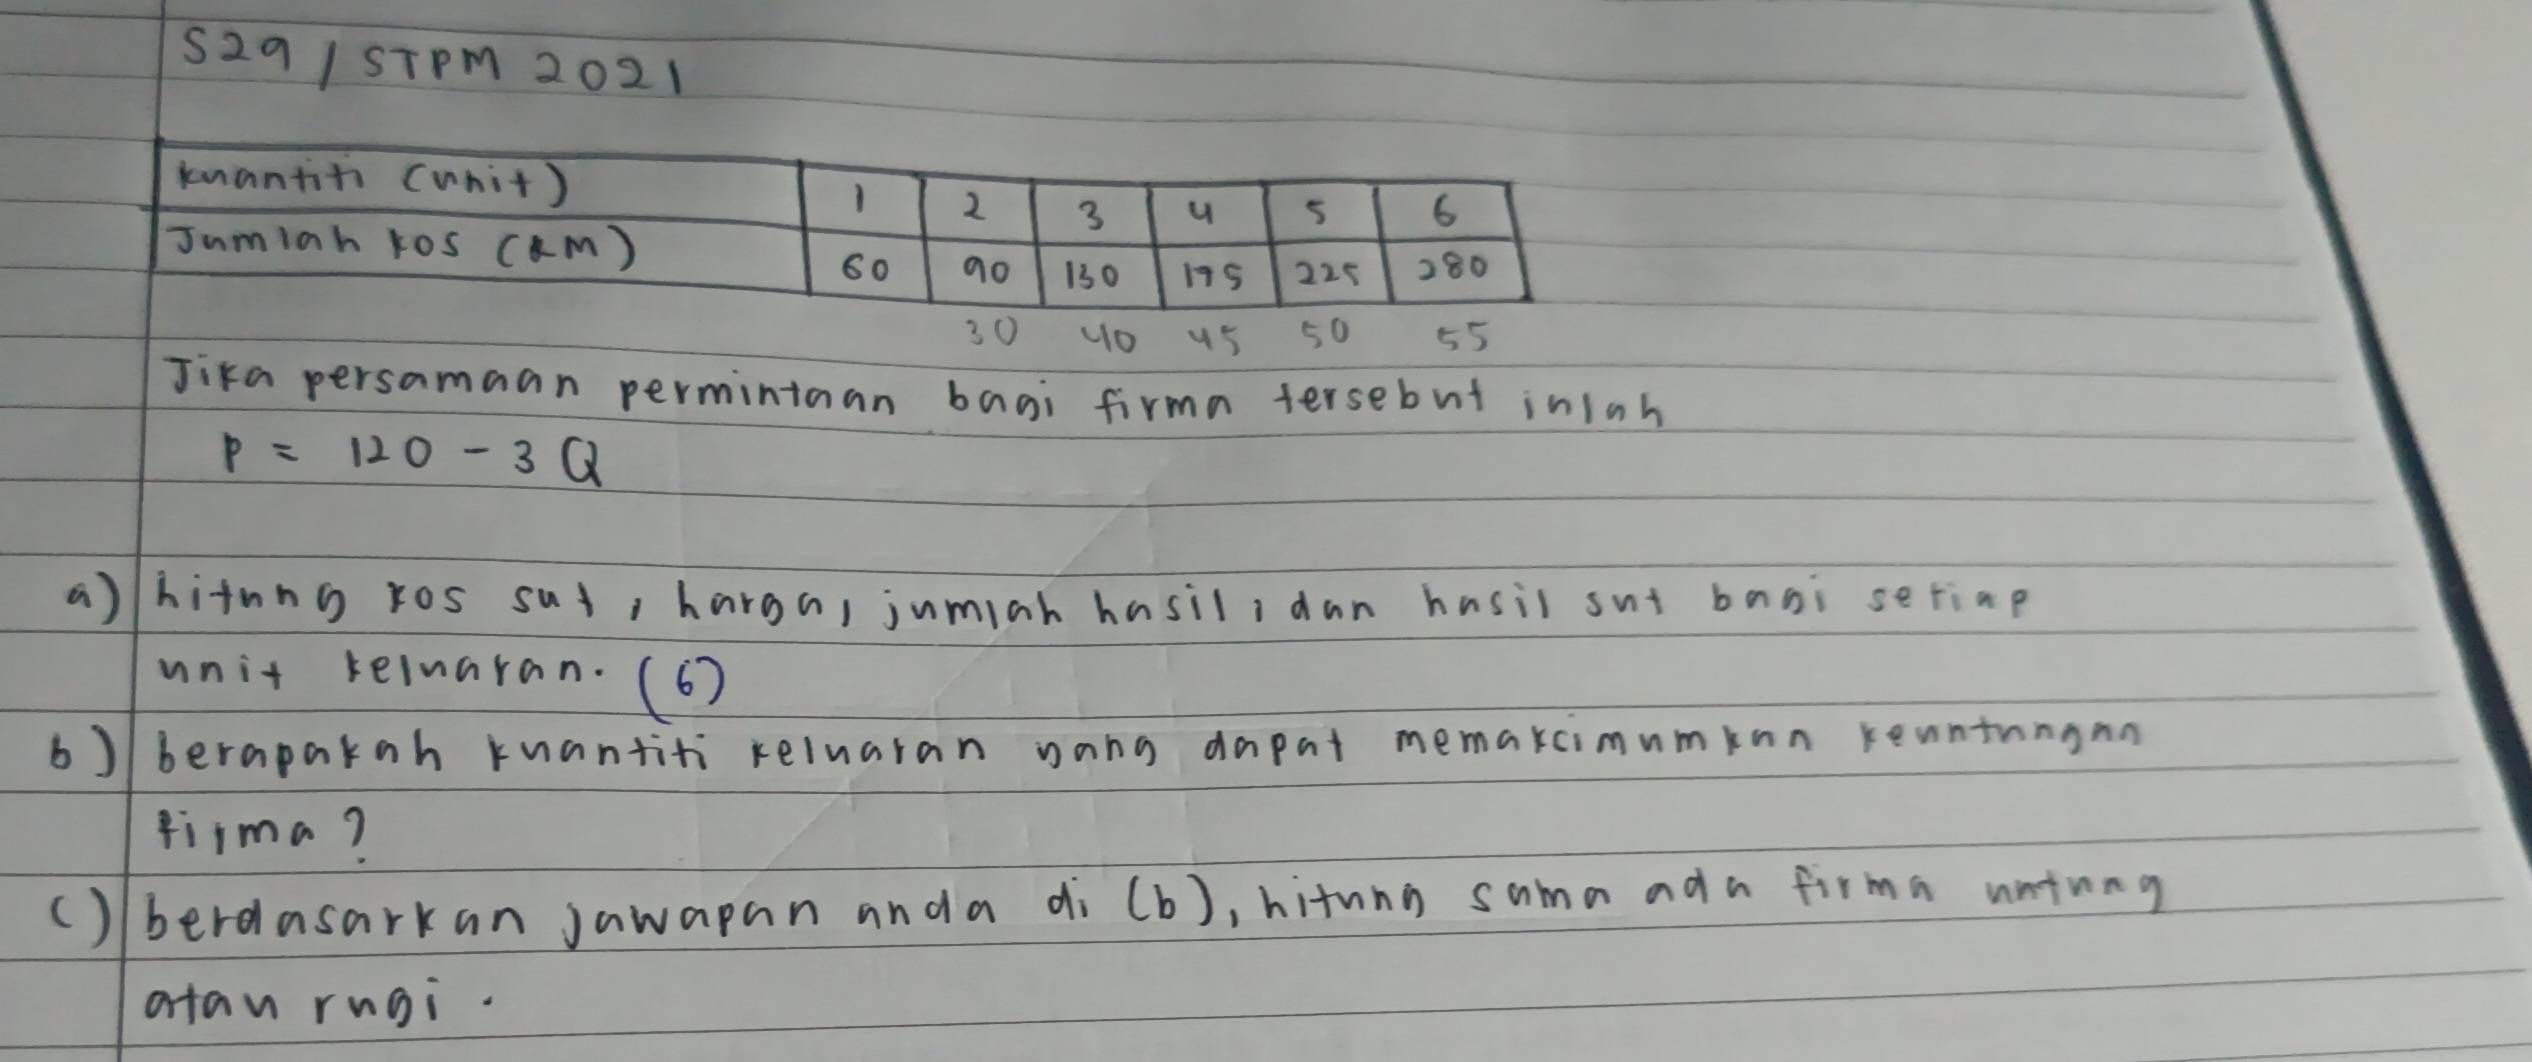 S29 / STPM 2021
kuantiti (unit) 1 2 3 4 5 6
Jumlah kos (RM) 60 90 130 175 225 280
30 40 45 50 55
Jika persamaan permintaan bagi firma tersebut ialah
P = 120 - 3Q
a) hitung kos sut, harga, jumlah hasil, dan hasil sut bagi setiap
unit keluaran. (6)
b) berapakah kuantiti keluaran yang dapat memakcimumkan keuntungan
firma?
c) berdasarkan jawapan anda di (b), hitung sama ada firma untung
atau rugi.